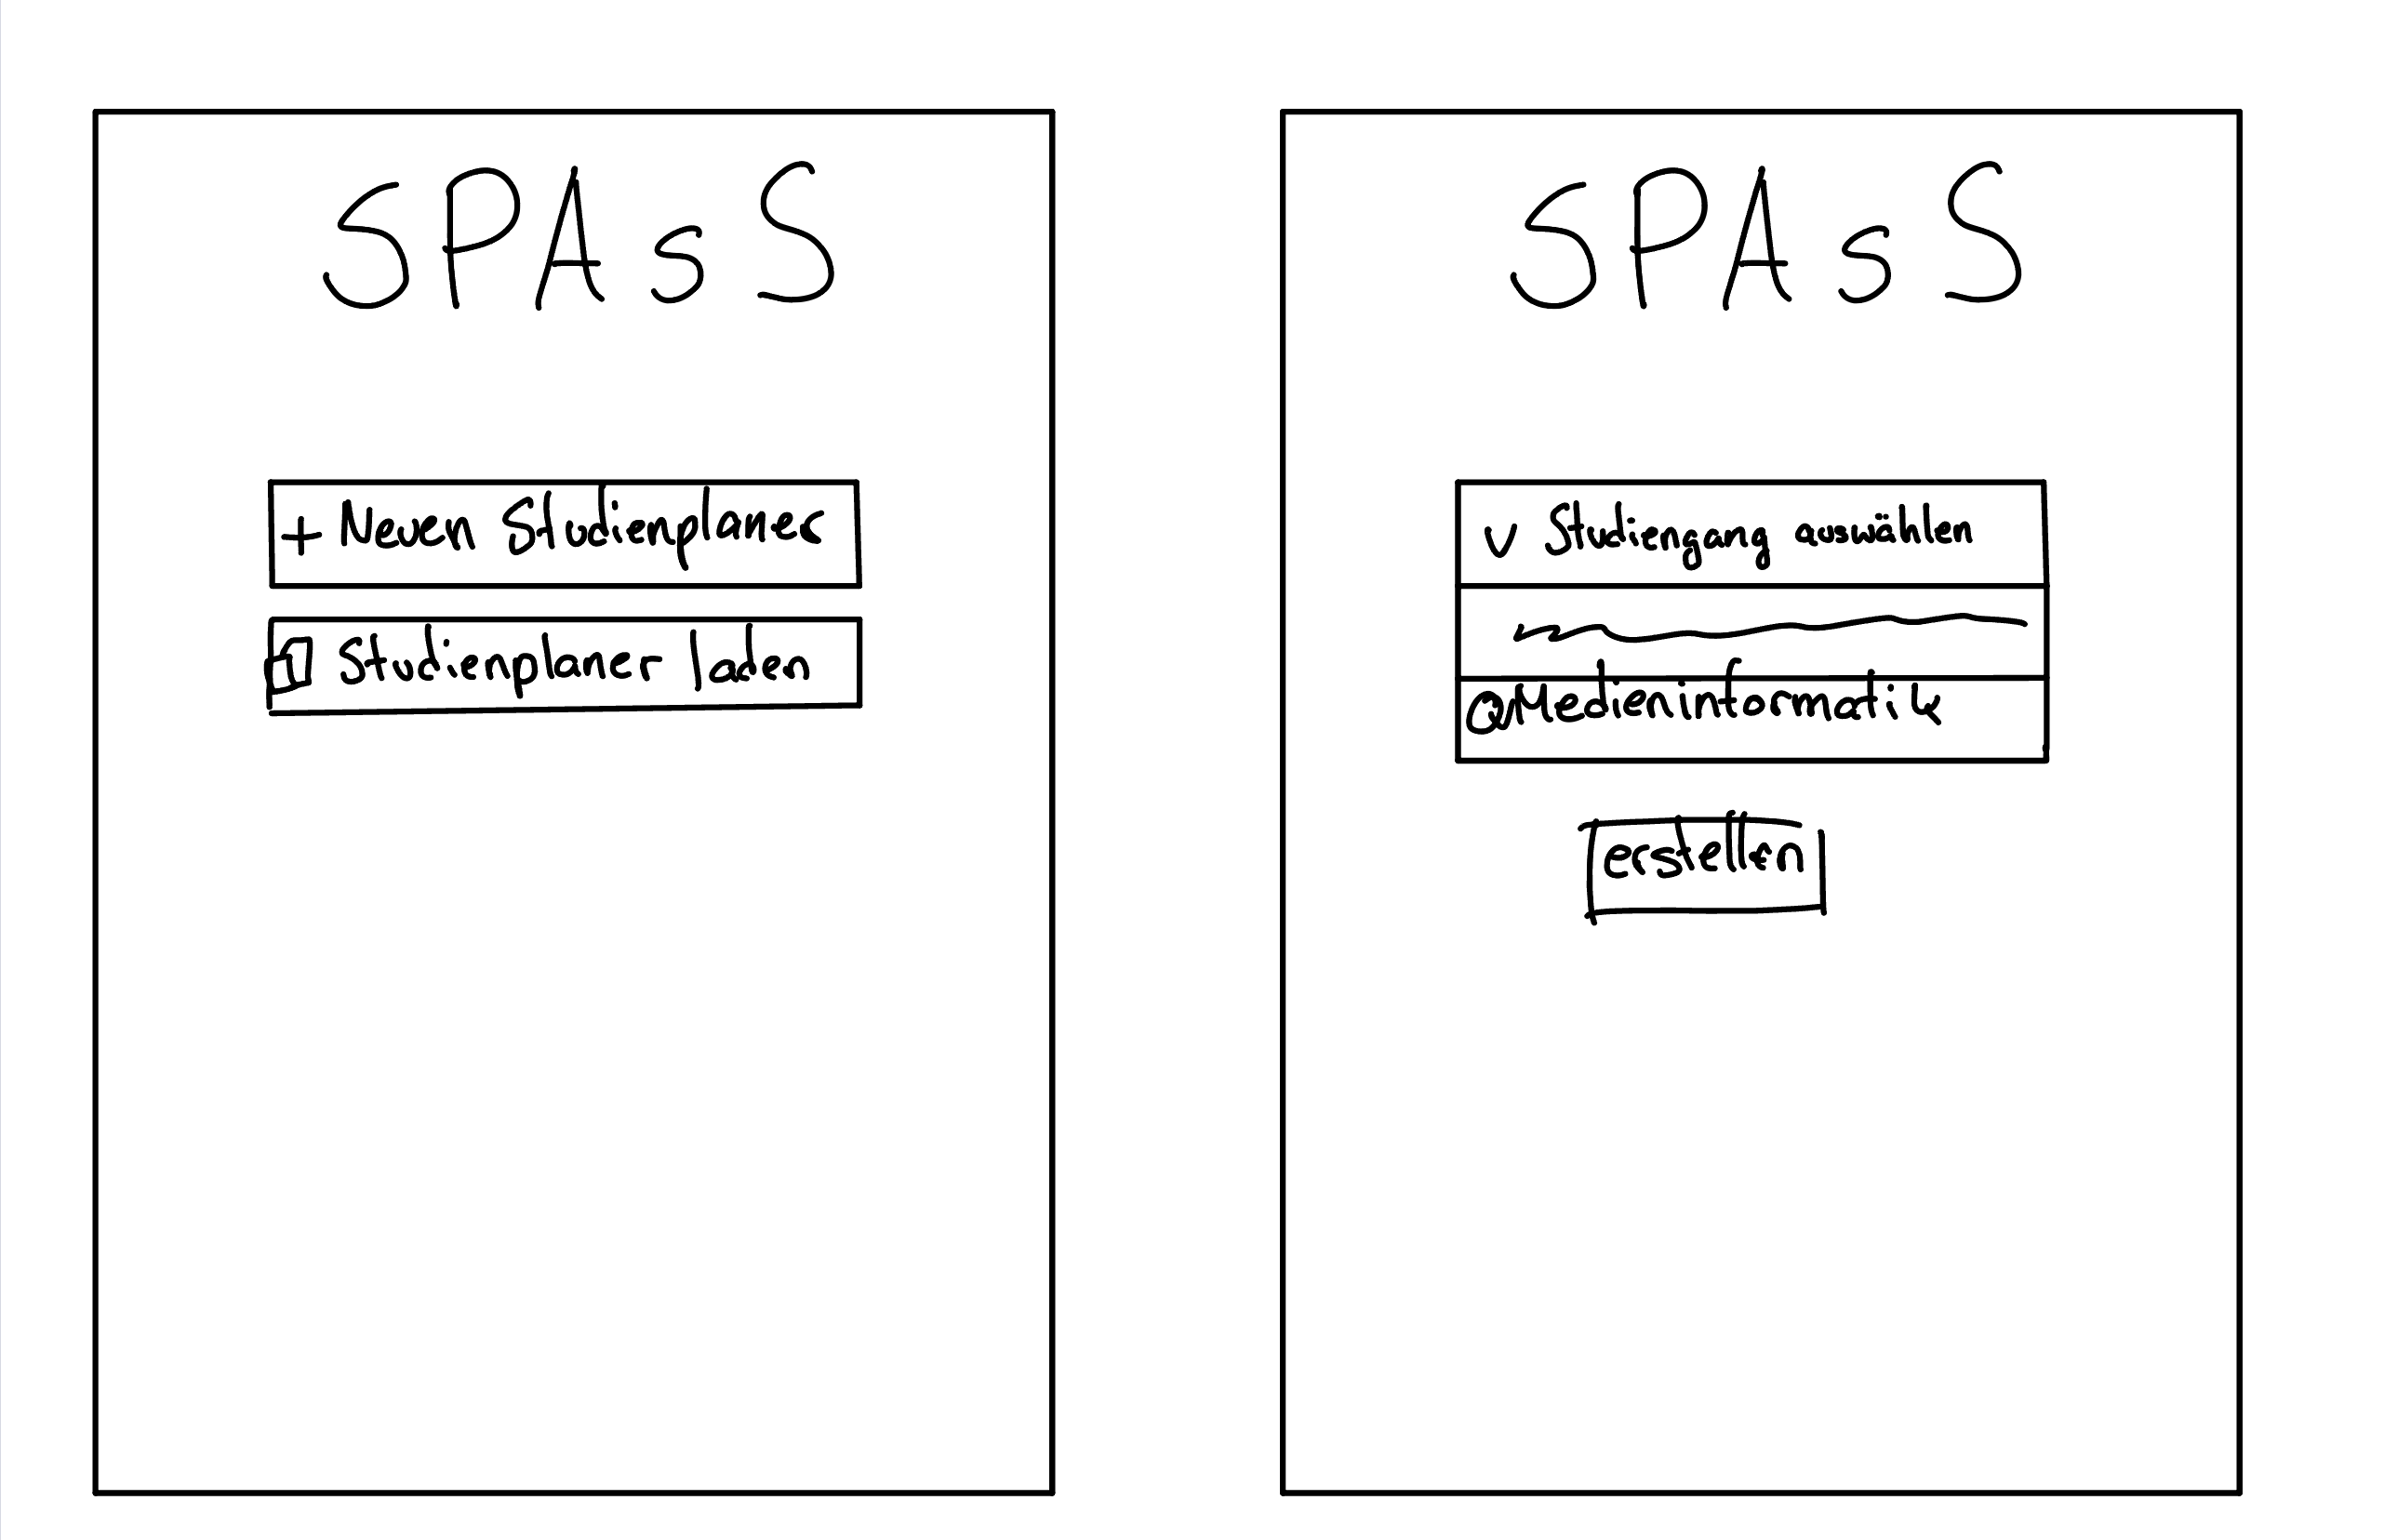 SPAsS
+ Neuen Studienplaner
Studienplaner laden
SPAsS
Studiengang auswählen
Medieninformatik
erstellen